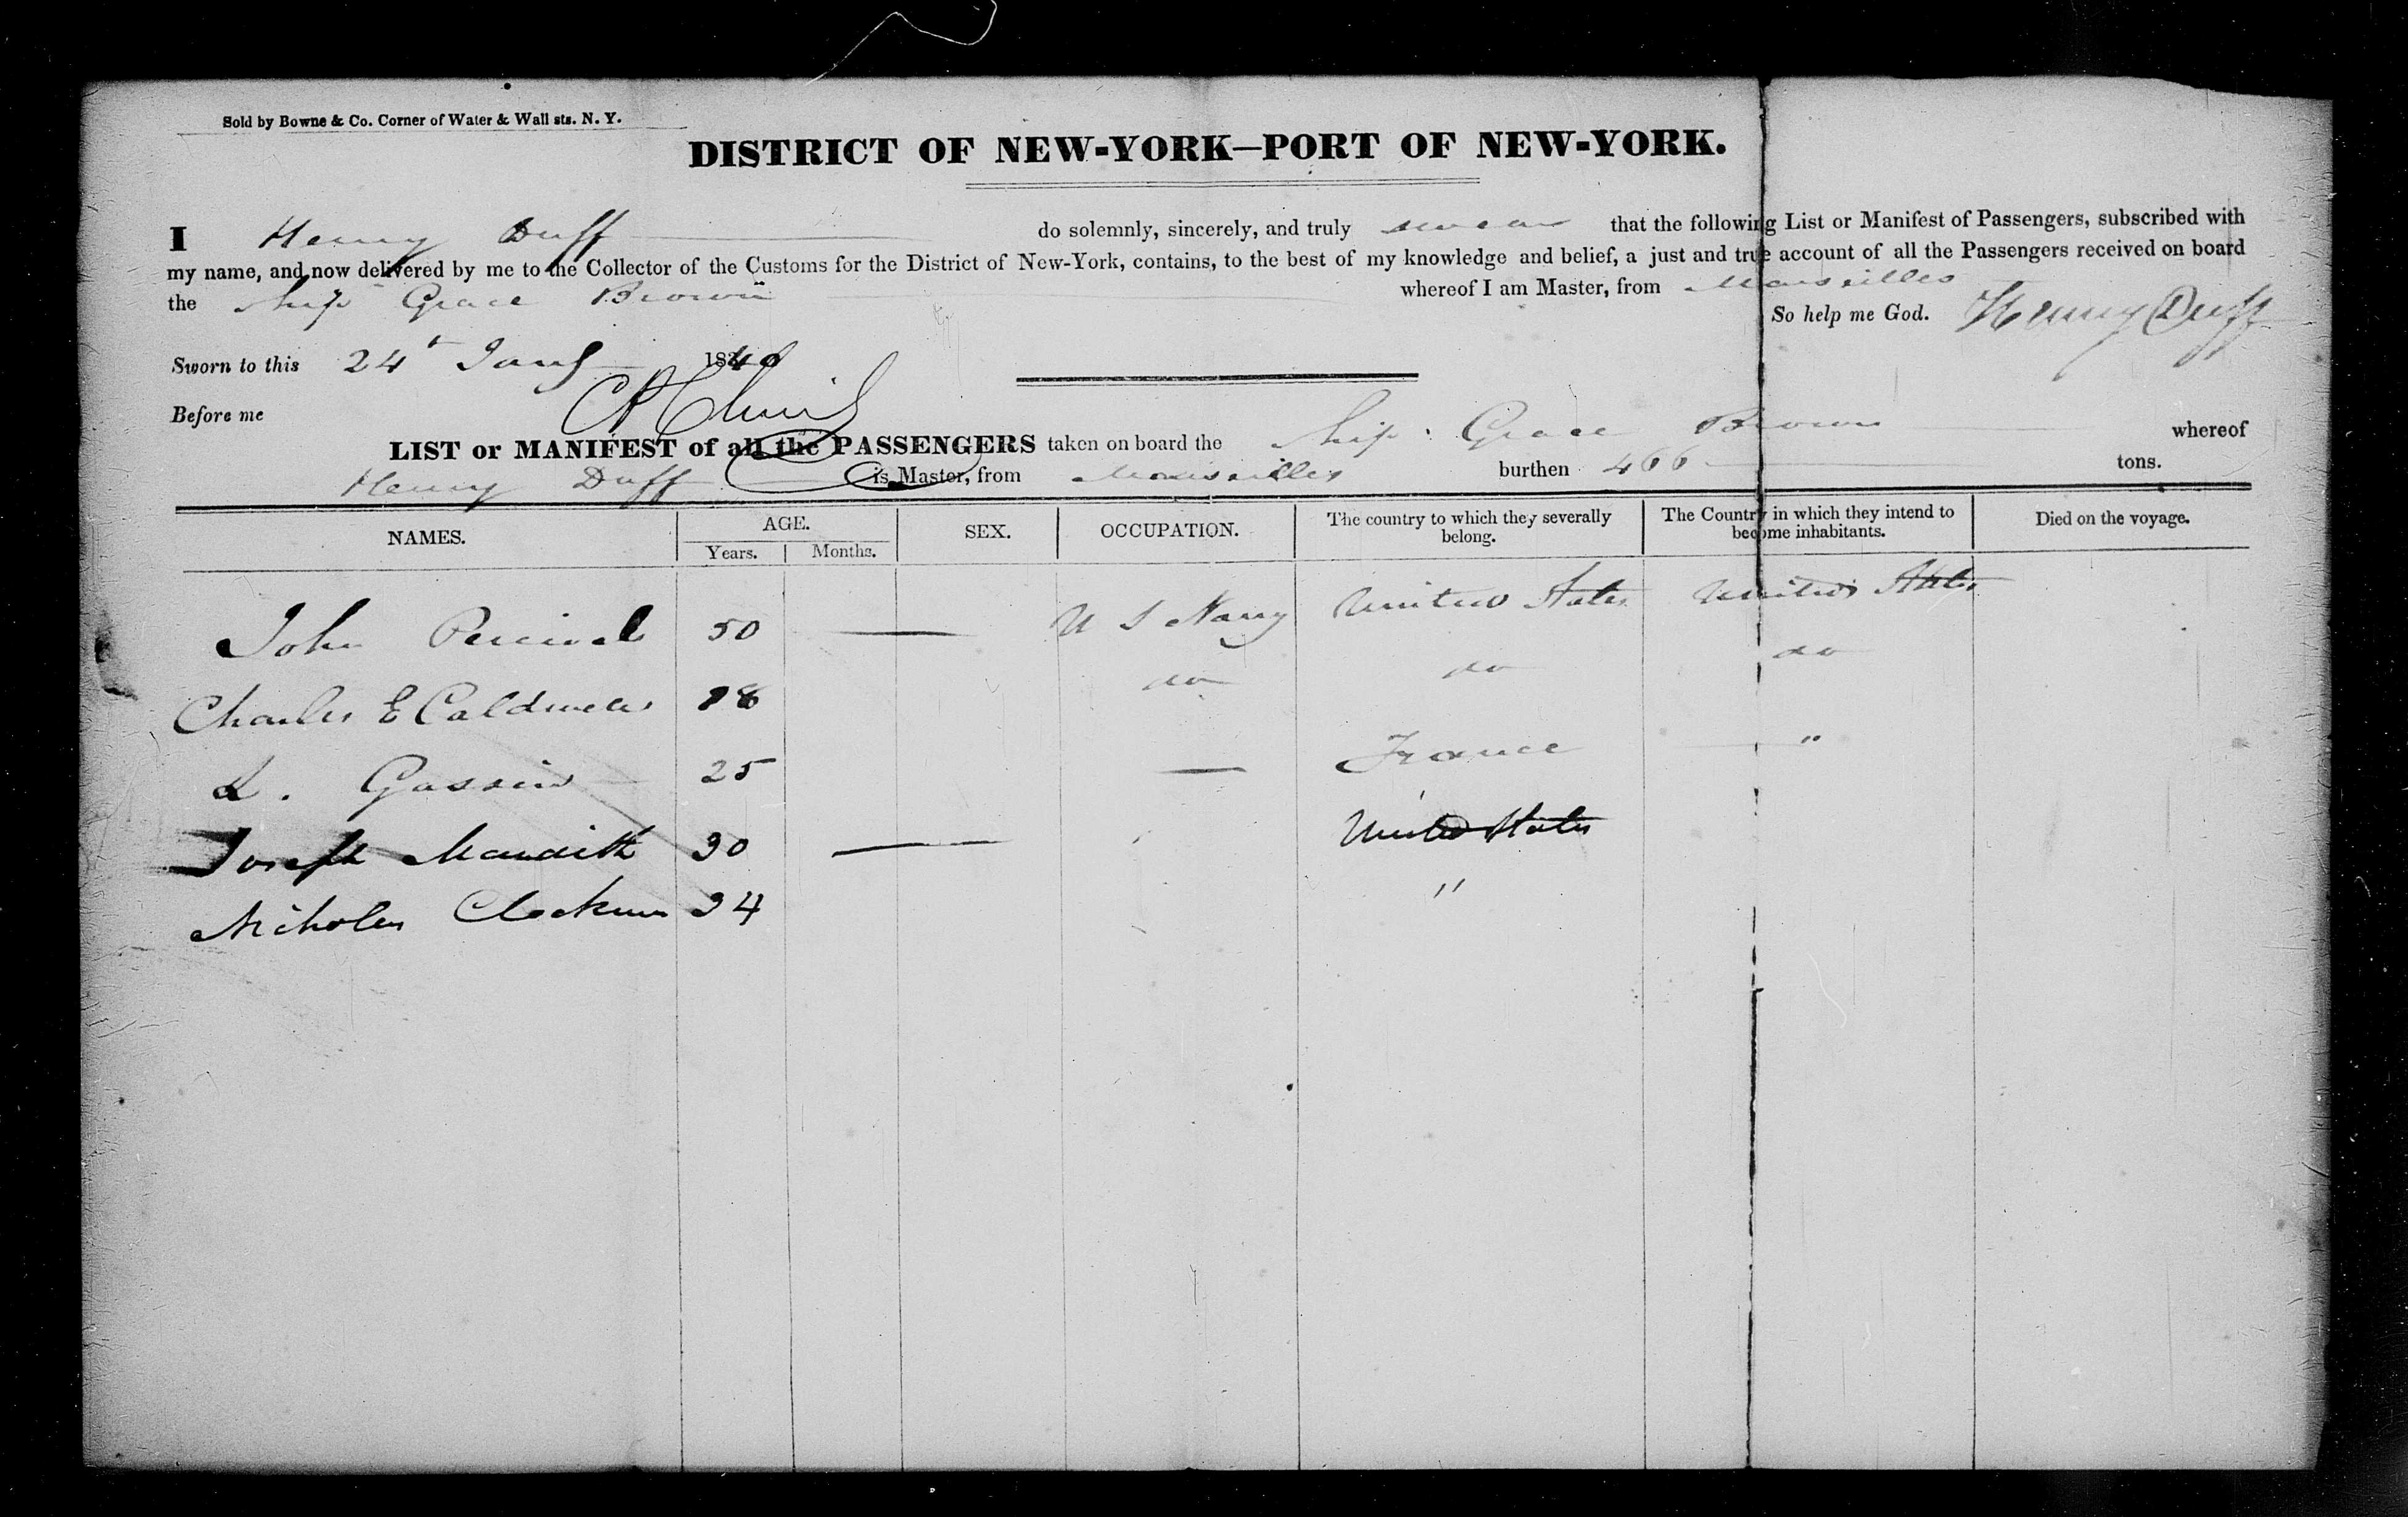 Sold by Bowne & Co. Corner of Water & Wall sts. N. Y.
DISTRICT OF NEW-YORK—PORT OF NEW-YORK.
I Henry Duff do solemnly, sincerely, and truly swear that the following List or Manifest of Passengers, subscribed with
my name, and now delivered by me to the Collector of the Customs for the District of New-York, contains, to the best of my knowledge and belief, a just and true account of all the Passengers received on board
the Ship Grace Brown whereof I am Master, from Marseilles
So help me God. Henry Duff
Sworn to this 24 Jany 1840
Before me
LIST or MANIFEST of all the PASSENGERS taken on board the Ship Grace Brown whereof
Henry Duff is Master, from Marseilles burthen 466 tons.
NAMES. AGE. SEX. OCCUPATION. The country to which they severally belong. The Country in which they intend to become inhabitants. Died on the voyage.
Years. Months.
John Percival 50 — U S Navy United States United States
Charles E Caldwell 18 do do do
L. Gassin 25 — France "
Joseph 30 — United States
Nicholas 34 "